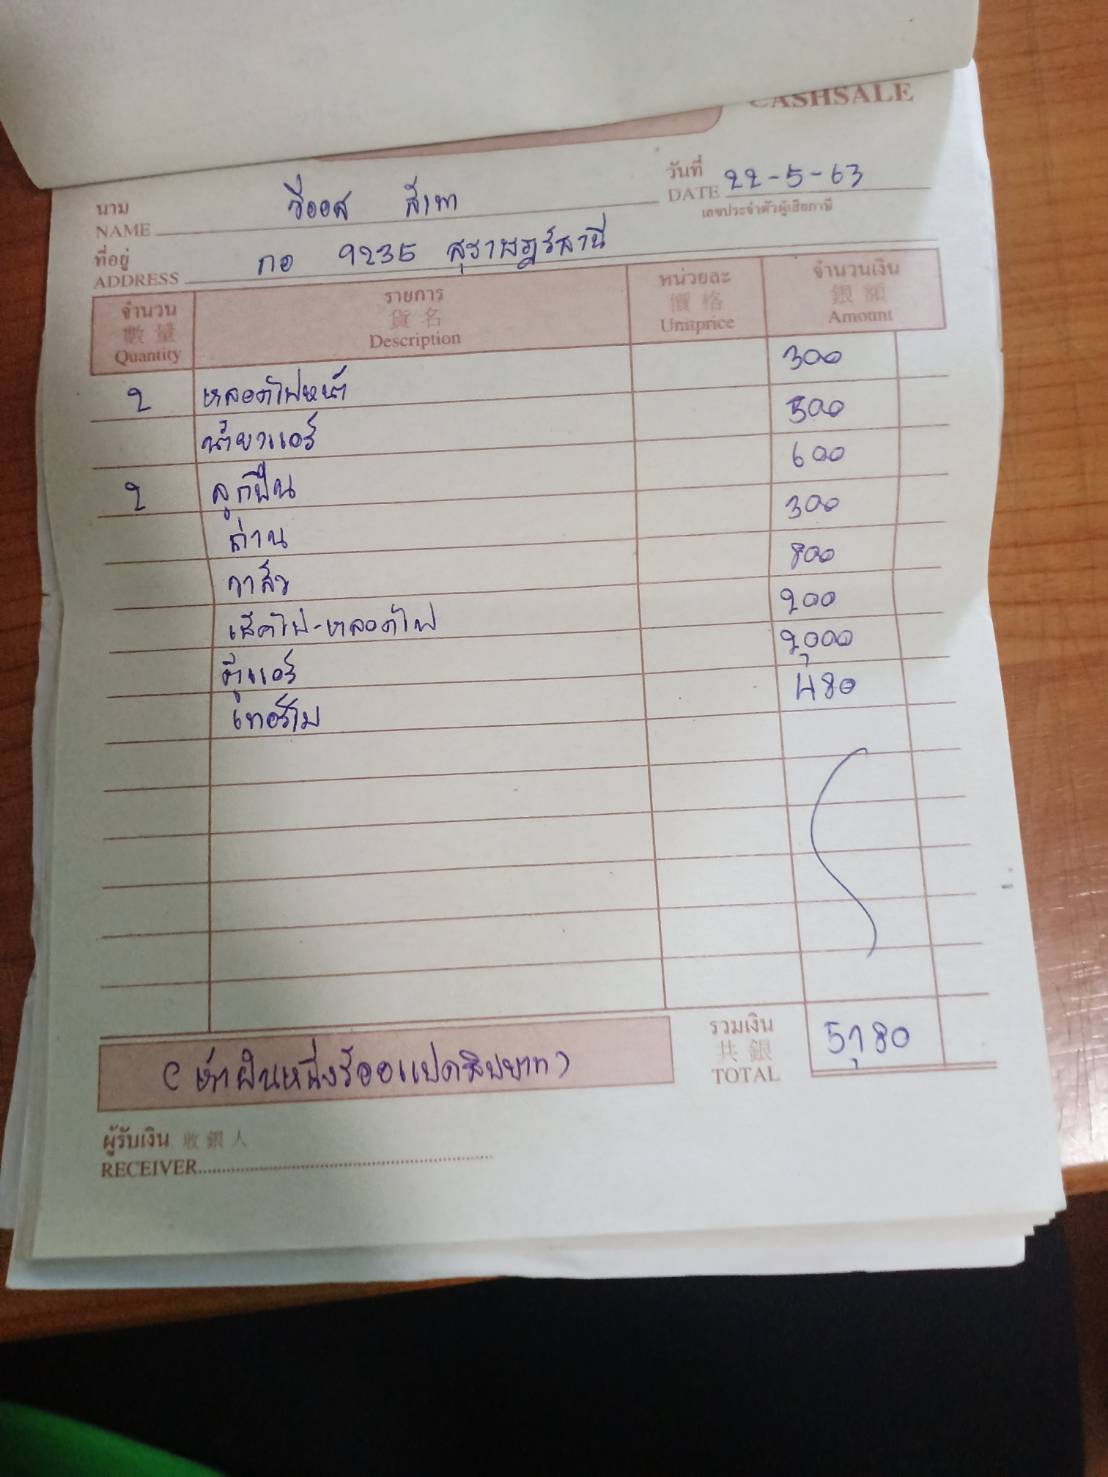 CASHSALE
นาม
NAME วีออส สีเทา
วันที่
DATE 22-5-63
เลขประจำตัวผู้เสียภาษี
ที่อยู่
ADDRESS กอ 9235 สุราษฎร์ธานี
จำนวน 數量 Quantity รายการ 貨名 Description หน่วยละ 價格 Unitprice จำนวนเงิน 銀額 Amount
2 หลอดไฟหน้า 300
น้ำยาแอร์ 500
2 ลูกปืน 600
ถ่าน 300
วาล์ว 800
เช็คไฟ-หลอดไฟ 200
ตู้แอร์ 2,000
เทอร์โม 480
รวมเงิน
共銀
TOTAL 5,180
(ห้าพันหนึ่งร้อยแปดสิบบาท)
ผู้รับเงิน 收銀人
RECEIVER